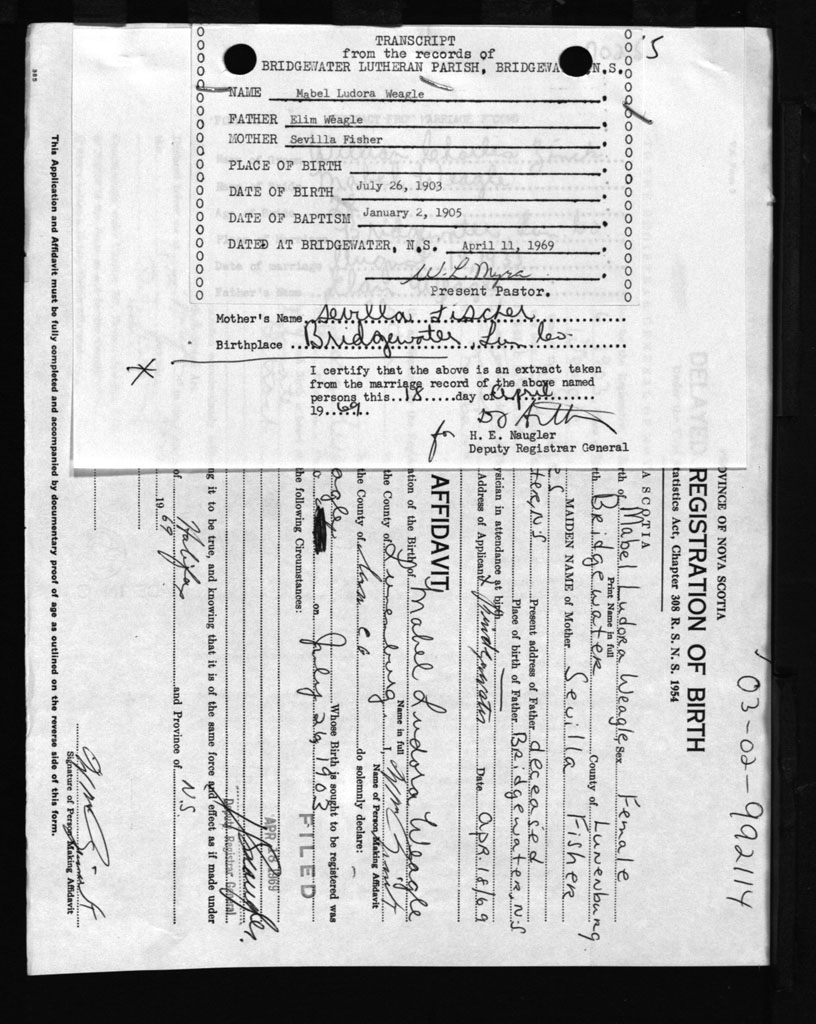 TRANSCRIPT
from the records of
BRIDGEWATER LUTHERAN PARISH, BRIDGEWA N.S.
'5
NAME Mabel Ludora Weagle
FATHER Elim Weagle
MOTHER Sevilla Fisher
PLACE OF BIRTH
DATE OF BIRTH July 26, 1903
DATE OF BAPTISM January 2, 1905
DATED AT BRIDGEWATER, N.S. April 11, 1969
W. L. Myra
Present Pastor.
Mother's Name Sevilla Fischer
Birthplace Bridgewater, Lun Co.
I certify that the above is an extract taken
from the marriage record of the above named
persons this 18 day of April
19 69
for
H. E. Naugler
Deputy Registrar General
03-02-992114
OVINCE OF NOVA SCOTIA
REGISTRATION OF BIRTH
tatistics Act, Chapter 308 R. S. N. S. 1954
A SCOTIA
rth of Mabel Ludora Weagle, Sex Female
Print Name in full
th Bridgewater County of Lunenburg
NS MAIDEN NAME of Mother Sevilla Fisher
ter, NS Present address of Father deceased
Place of birth of Father Bridgewater, N.S
ysician in attendance at birth
Address of Applicant Bridgewater Date Apr. 18/69
AFFIDAVIT
ation of the Birth of Mabel Ludora Weagle
Name in full
the County of Lunenburg, I,
Name of Person Making Affidavit
the County of Lun Co do solemnly declare:
eagle Whose Birth is sought to be registered was
on July 26, 1903
the following Circumstances:
FILED
APR 18 1969
Deputy Registrar General
ng it to be true, and knowing that it is of the same force and effect as if made under
of Halifax and Province of N.S.
19 69
Signature of Person Making Affidavit
This Application and Affidavit must be fully completed and accompanied by documentary proof of age as outlined on the reverse side of this form.
DELAYED